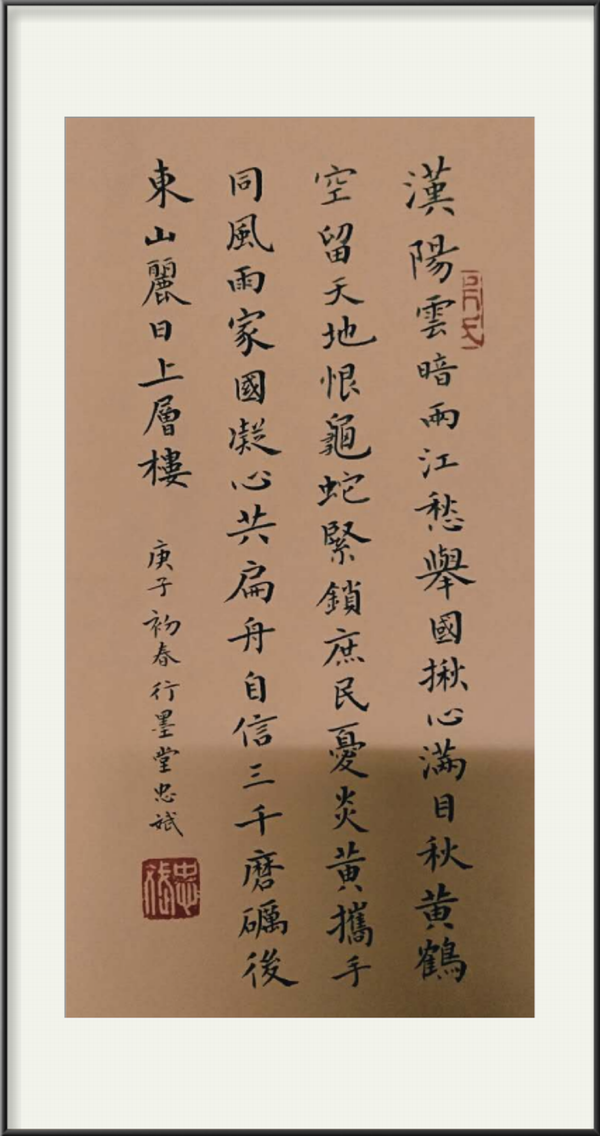 漢陽雲暗兩江愁舉國揪心滿目秋黃鶴
空留天地恨龜蛇緊鎖庶民憂炎黃攜手
同風雨家國凝心共扁舟自信三千磨礪後
東山麗日上層樓
庚子初春行墨堂忠斌